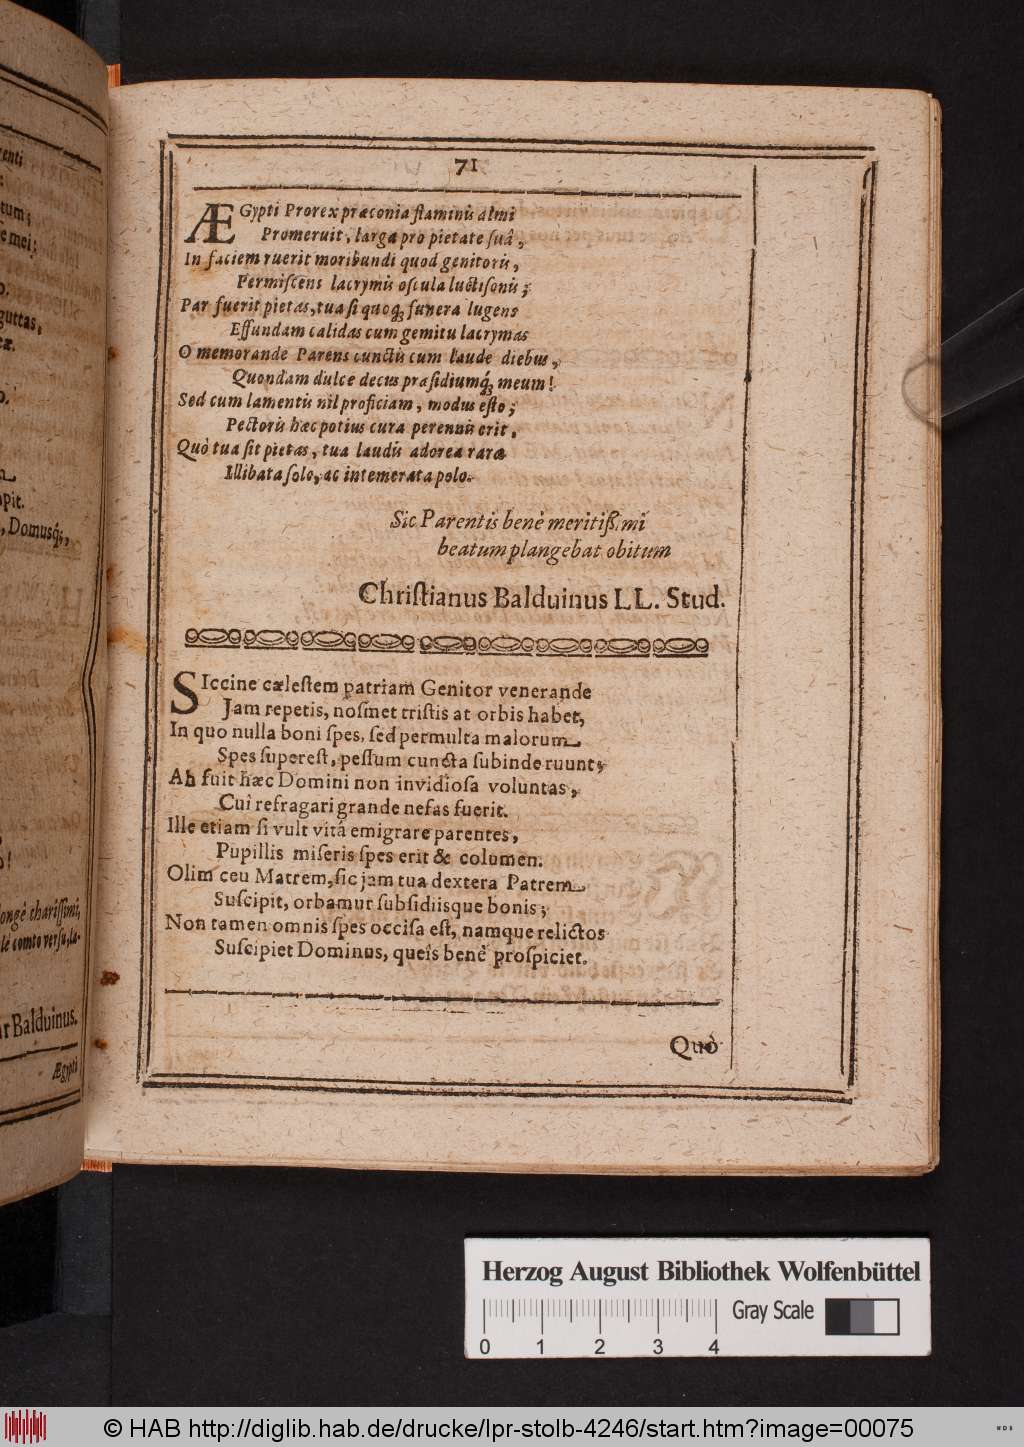 enti
tum;
e mei;
guttas,
apit.
, Domusq́;,
longè charissimi,
lè comto versu, la-
ar Balduinus.
Ægypti
71
ÆGypti Prorex præconia flaminis almi
Promeruit, larga pro pietate suâ,
In faciem ruerit moribundi quod genitoris,
Permiscens lacrymis oscula luctisonis;
Par fuerit pietas, tua si quoq; funera lugens
Effundam calidas cum gemitu lacrymas
O memorande Parens cunctis cum laude diebus,
Quondam dulce decus præsidiumq́; meum!
Sed cum lamentis nil proficiam, modus esto;
Pectoris hæc potius cura perennis erit,
Quò tua sit pietas, tua laudis adorea raræ
Illibata solo, ac intemerata polo.
Sic Parentis benè meritiss.mi
beatum plangebat obitum
Christianus Balduinus LL. Stud.
SIccine cælestem patriam Genitor venerande
Jam repetis, nosmet tristis at orbis habet,
In quo nulla boni spes, sed permulta malorum
Spes superest, pessum cuncta subinde ruunt;
Ah fuit hæc Domini non invidiosa voluntas,
Cui refragari grande nefas fuerit.
Ille etiam si vult vitâ emigrare parentes,
Pupillis miseris spes erit & columen.
Olim ceu Matrem, sic jam tua dextera Patrem
Suscipit, orbamur subsidiisque bonis;
Non tamen omnis spes occisa est, namque relictos
Suscipiet Dominus, queis benè prospiciet.
Quò
Herzog August Bibliothek Wolfenbüttel
Gray Scale
0 1 2 3 4
© HAB http://diglib.hab.de/drucke/lpr-stolb-4246/start.htm?image=00075